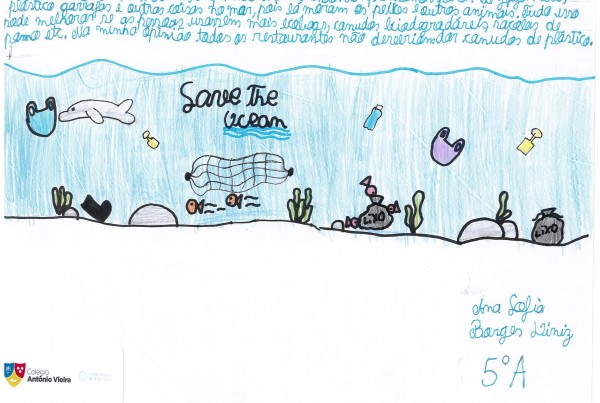 plástico garrafas e outras coisas no mar, pois lá moram os peixes e outros animais. Tudo isso
pode melhorar se as pessoas usassem mais ecobags, canudos biodagradáveis, sacolas de
pano etc. Na minha opinião todos os restaurantes não deveriam dar canudos de plástico.
Save The
Ocean
LIXO
LIXO
Ana Sofia
Borges Diniz
5ºA
Colégio
Antônio Vieira